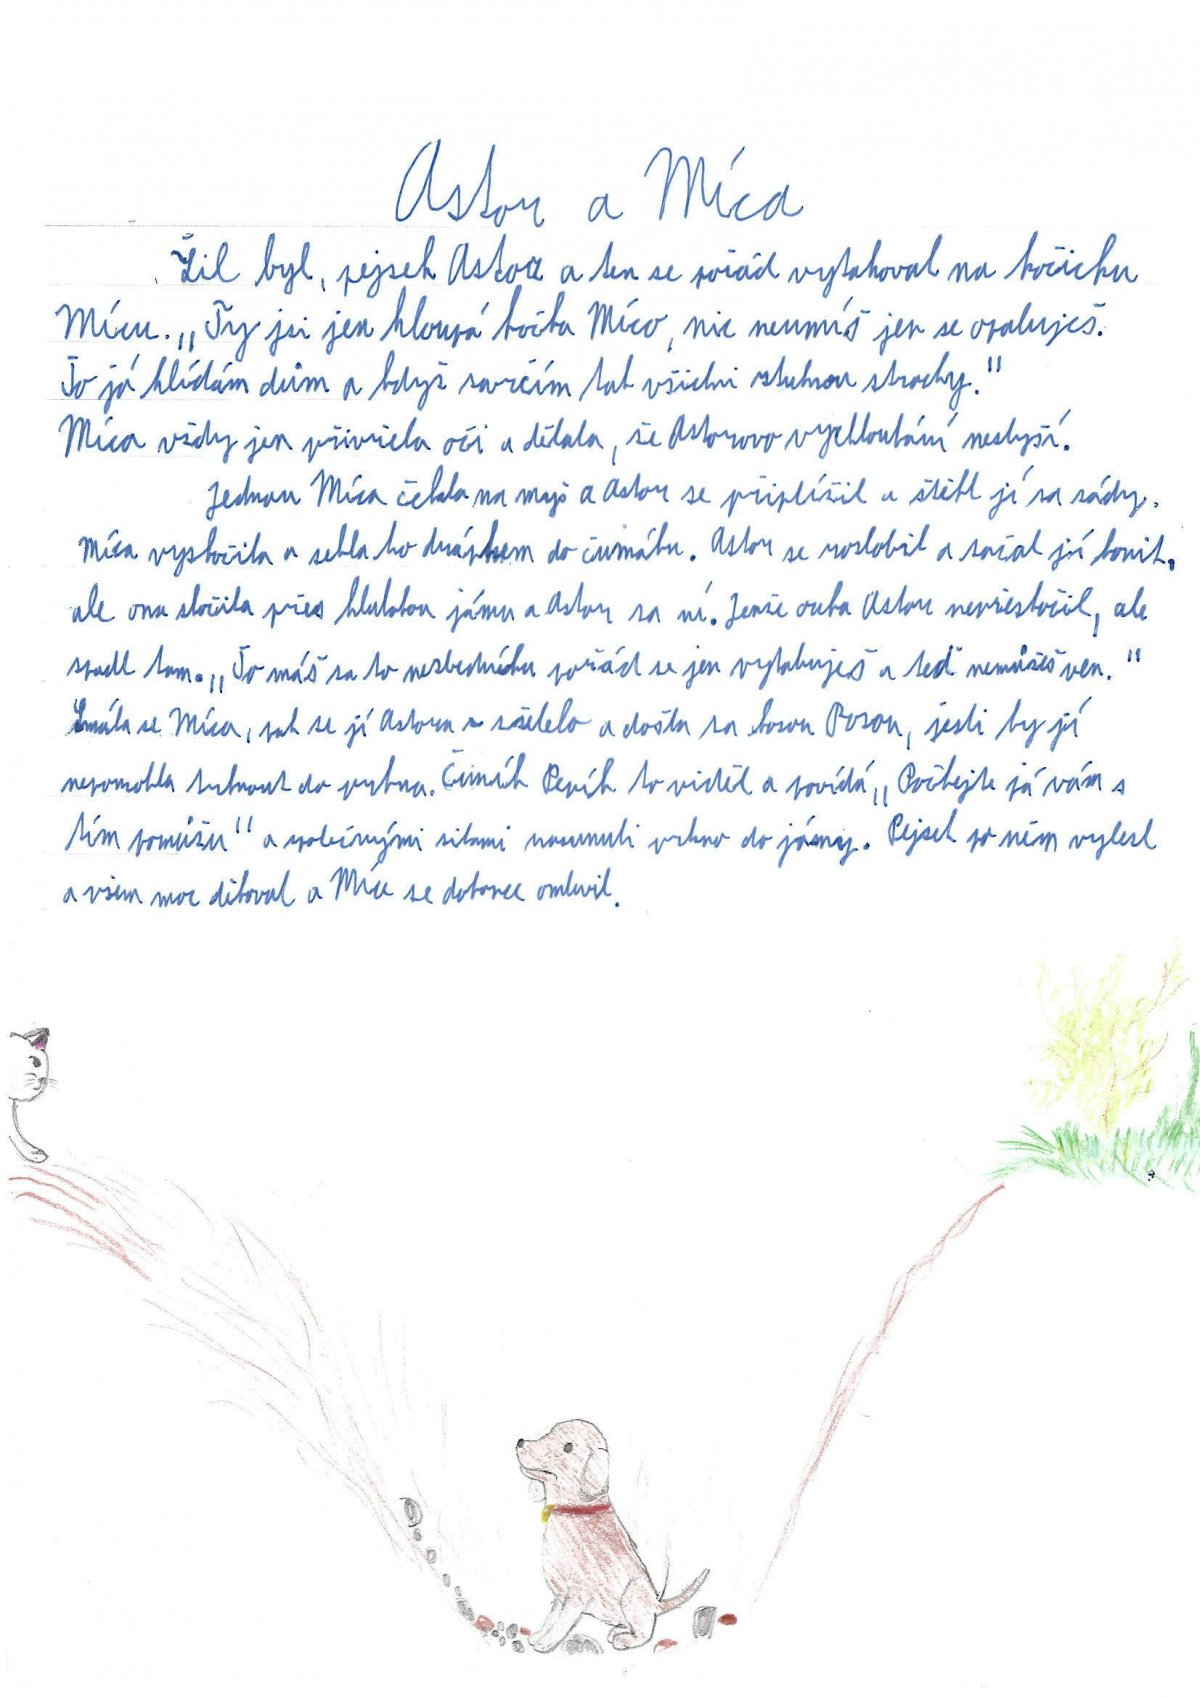 Astor a Míca
Žil byl, pejsek Astor a ten se pořád vytahoval na kočičku
Mícu. „Ty jsi jen hloupá kočka Míco, nic neumíš jen se opaluješ.
To já hlídám dům a když zavrčím tak všichni ztuhnou strachy."
Míca vždy jen přivřela oči a dělala, že Astorovo vychloubání neslyší.
Jednou Míca čekala na myš a Astor se připlížil a štěkl jí za zády.
Míca vyskočila a sekla ho drápkem do čumáku. Astor se rozlobil a začal jí honit,
ale ona skočila přes hlubokou jámu a Astor za ní. Jenže ouha Astor nepřeskočil, ale
spadl tam. „To máš za to nezbedníku pořád se jen vytahuješ a teď nemůžeš ven."
Smála se Míca, pak se jí Astora zželelo a došla za kozou Rozou, jestli by jí
nepomohla trknout do prkna. Čuník Pepík to viděl a povídá „Počkejte já vám s
tím pomůžu" a společnými silami nasunuli prkno do jámy. Pejsek po něm vylezl
a všem moc děkoval a Míce se dokonce omluvil.